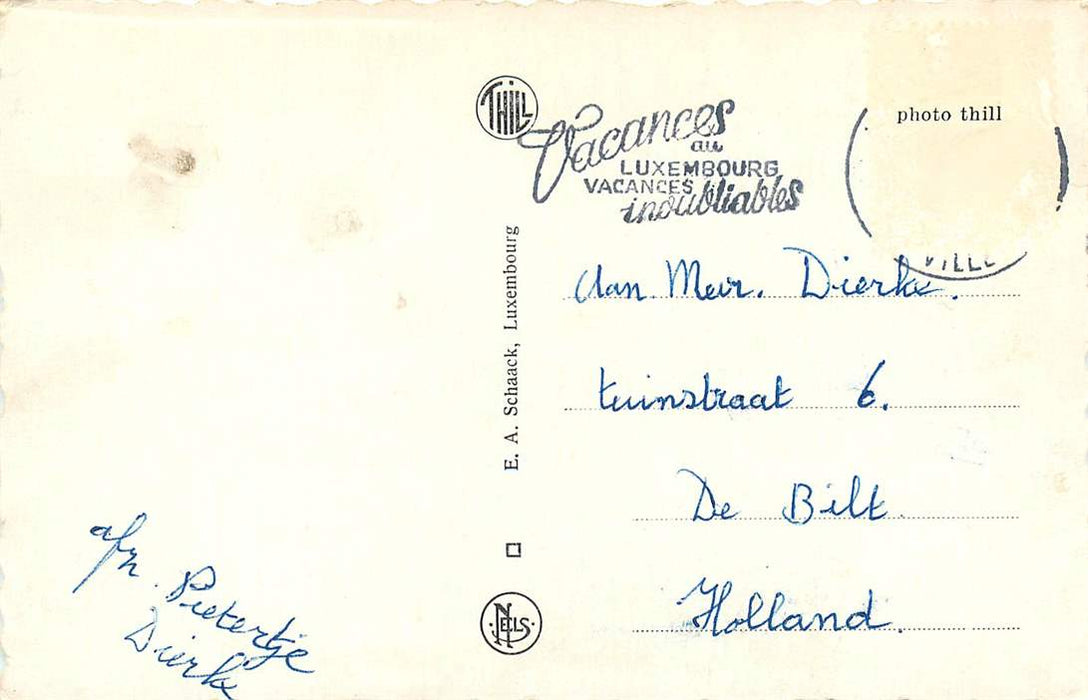 THILL
Vacances
au
LUXEMBOURG
VACANCES
inoubliables
photo thill
VILLE
E. A. Schaack, Luxembourg
Aan Mevr. Dierks.
tuinstraat 6.
De Bilt
Holland.
afz. Pietertje
Dierks
NELS